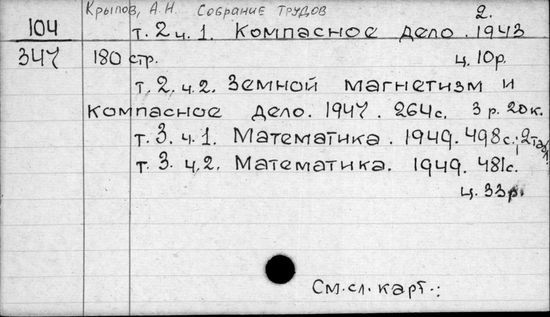 Крылов, А.Н. Собрание трудов 2.
104 т. 2 ч. 1. Компасное дело. 1943
347 180 стр. ц. 10р.
т. 2. ч. 2. Земной магнетизм и
компасное дело. 1947. 264с. 3 р. 20к.
т. 3. ч. 1. Математика. 1949. 498с.;
т. 3. ч. 2. Математика. 1949. 481с.
ц. 33р.
См. сл. карт.: